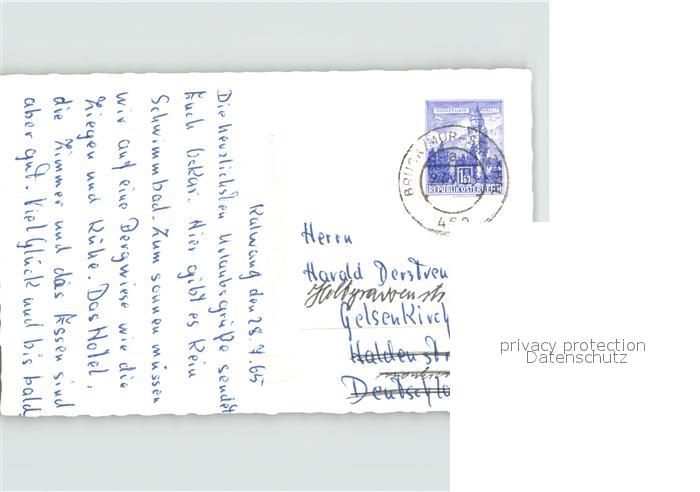 Kalwang den 28.7.65
Die herzlichsten Urlaubsgrüße sendet
Euch Oskar. Hier gibt es kein
Schwimmbad. Zum sonnen müssen
wir auf eine Bergwiese wie die
Ziegen und Kühe. Das Hotel,
die Zimmer und das Essen sind
aber gut. Viel Glück und bis bald
BRUCK/MUR-
REPUBLIK ÖSTERREICH
Herrn
Harald
Gelsenkirch
Haldenstr
Deutschla
privacy protection
Datenschutz